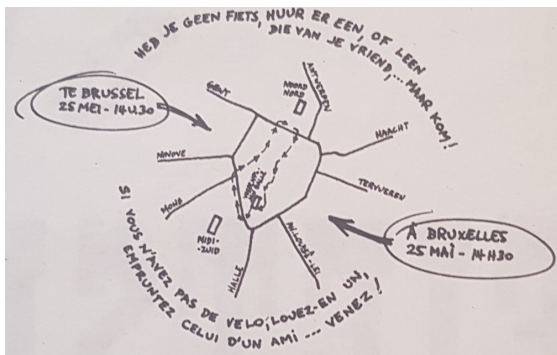 HEB JE GEEN FIETS, HUUR ER EEN, OF LEEN
DIE VAN JE VRIEND,... MAAR KOM!
TE BRUSSEL
25 MEI - 14U30
GENT
NOORD
NORD
ANTWERPEN
HAACHT
NINOVE
TERVUREN
MONS
MIDI-
-ZUID
HALLE
À BRUXELLES
25 MAÎ - 14H30
SI VOUS N'AVEZ PAS DE VELO, LOUEZ-EN UN,
EMPRUNTEZ CELUI D'UN AMI ... VENEZ!